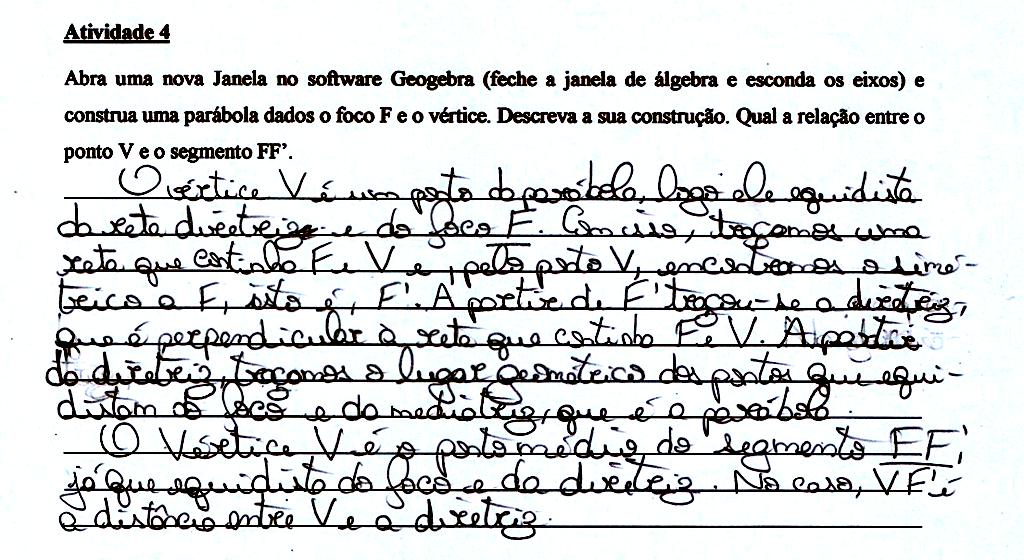 Atividade 4
Abra uma nova Janela no software Geogebra (feche a janela de álgebra e esconda os eixos) e
construa uma parábola dados o foco F e o vértice. Descreva a sua construção. Qual a relação entre o
ponto V e o segmento FF’.
O vértice V é um ponto da parábola, logo ele equidista
da reta diretriz e do foco F. Com isso, traçamos uma
reta que contenha F e V e, pelo ponto V, encontramos o simé-
trico a F, isto é, F'. A partir de F' traçou-se a diretriz,
que é perpendicular à reta que contenha F e V. A partir
da diretriz, traçamos o lugar geométrico dos pontos que equi-
distam do foco e da mediatriz, que é a parábola.
O Vértice V é o ponto médio do segmento FF',
já que equidista do foco e da diretriz. No caso, VF' é
a distância entre V e a diretriz.